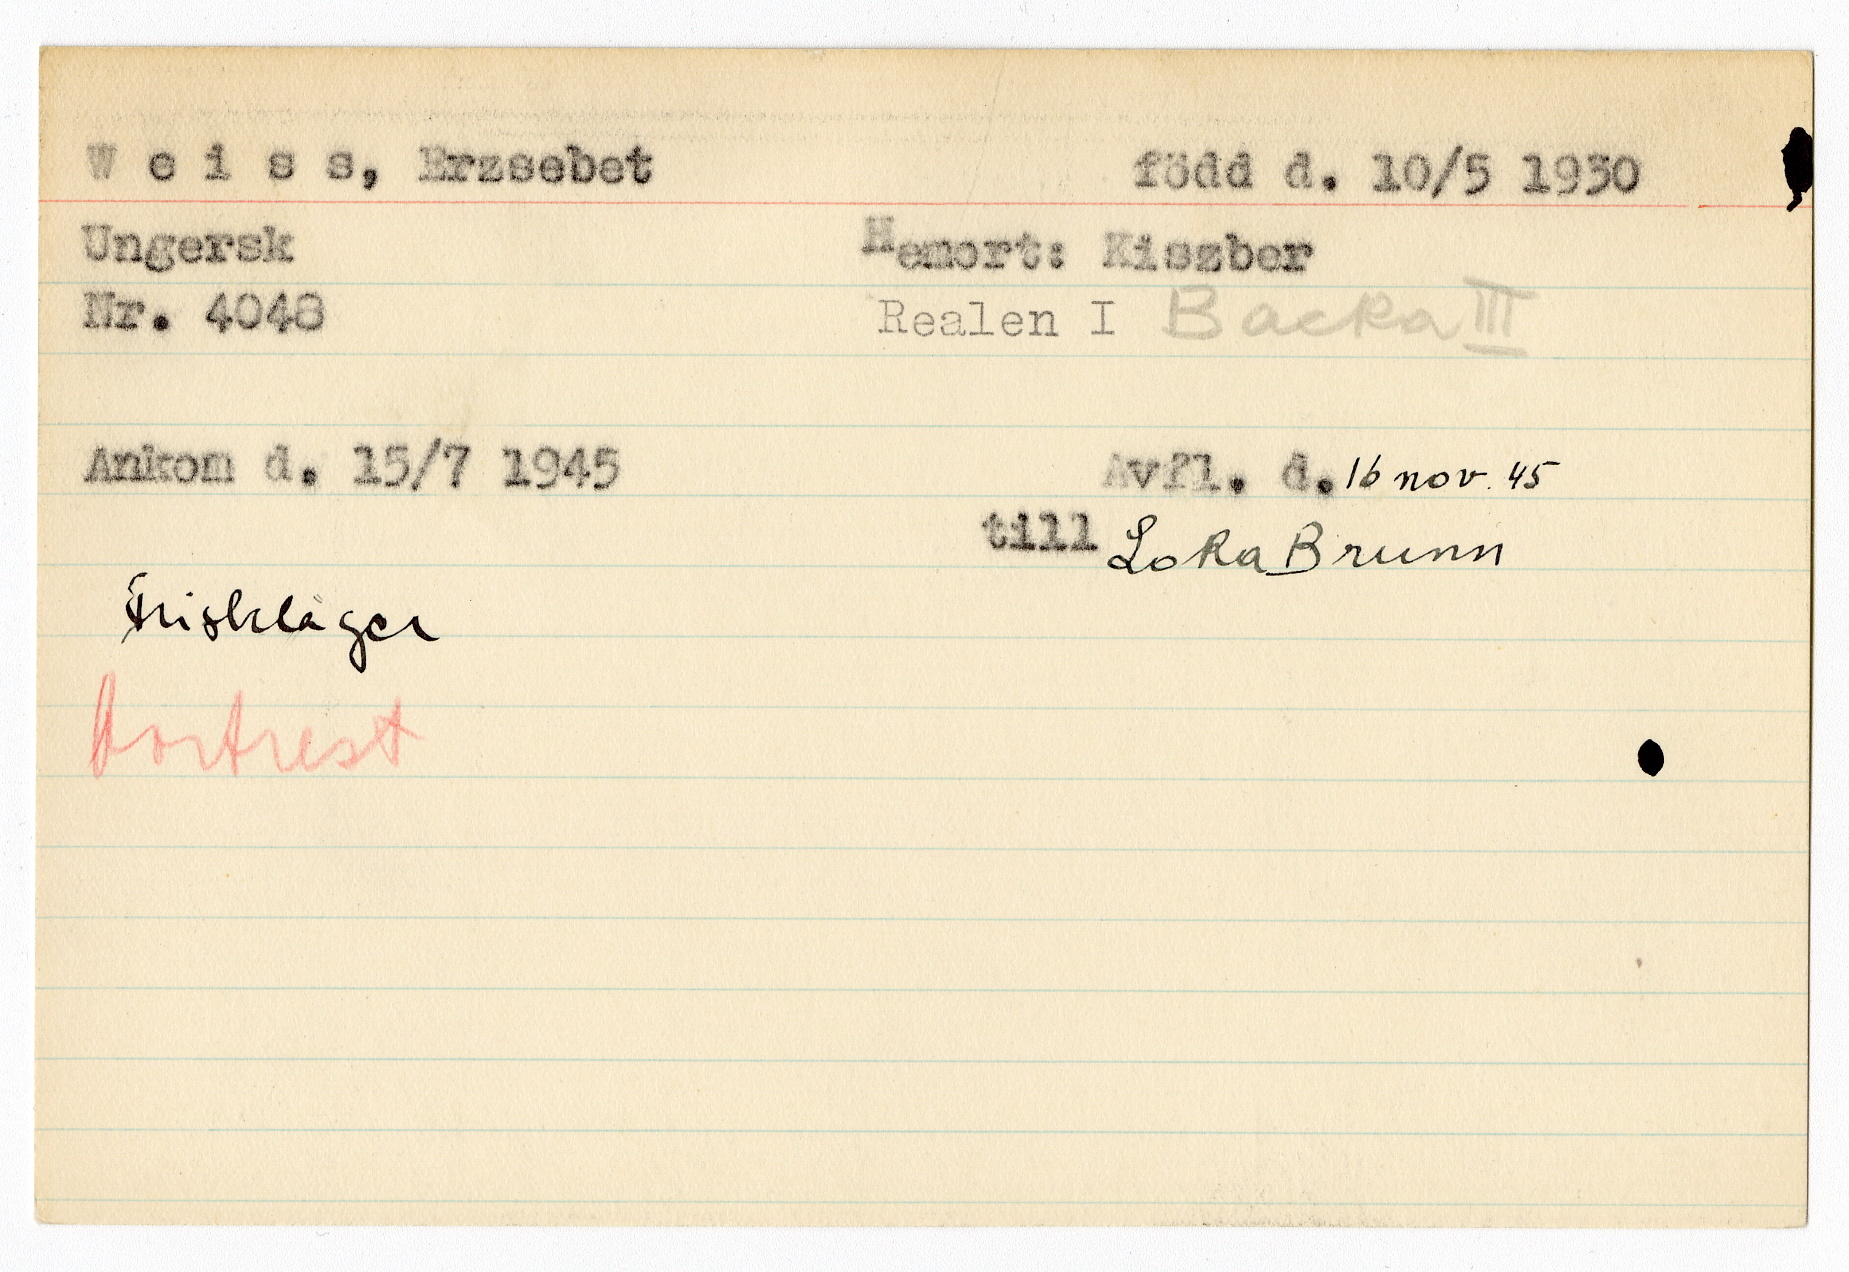 W e i s s, Erzsebet född d. 10/5 1930
Ungersk Hemort: Kiszber
Nr. 4048 Realen I Backa III
Ankom d. 15/7 1945 Avfl. d. 16 nov. 45
till Loka Brunn
Friskläger
Bortrest